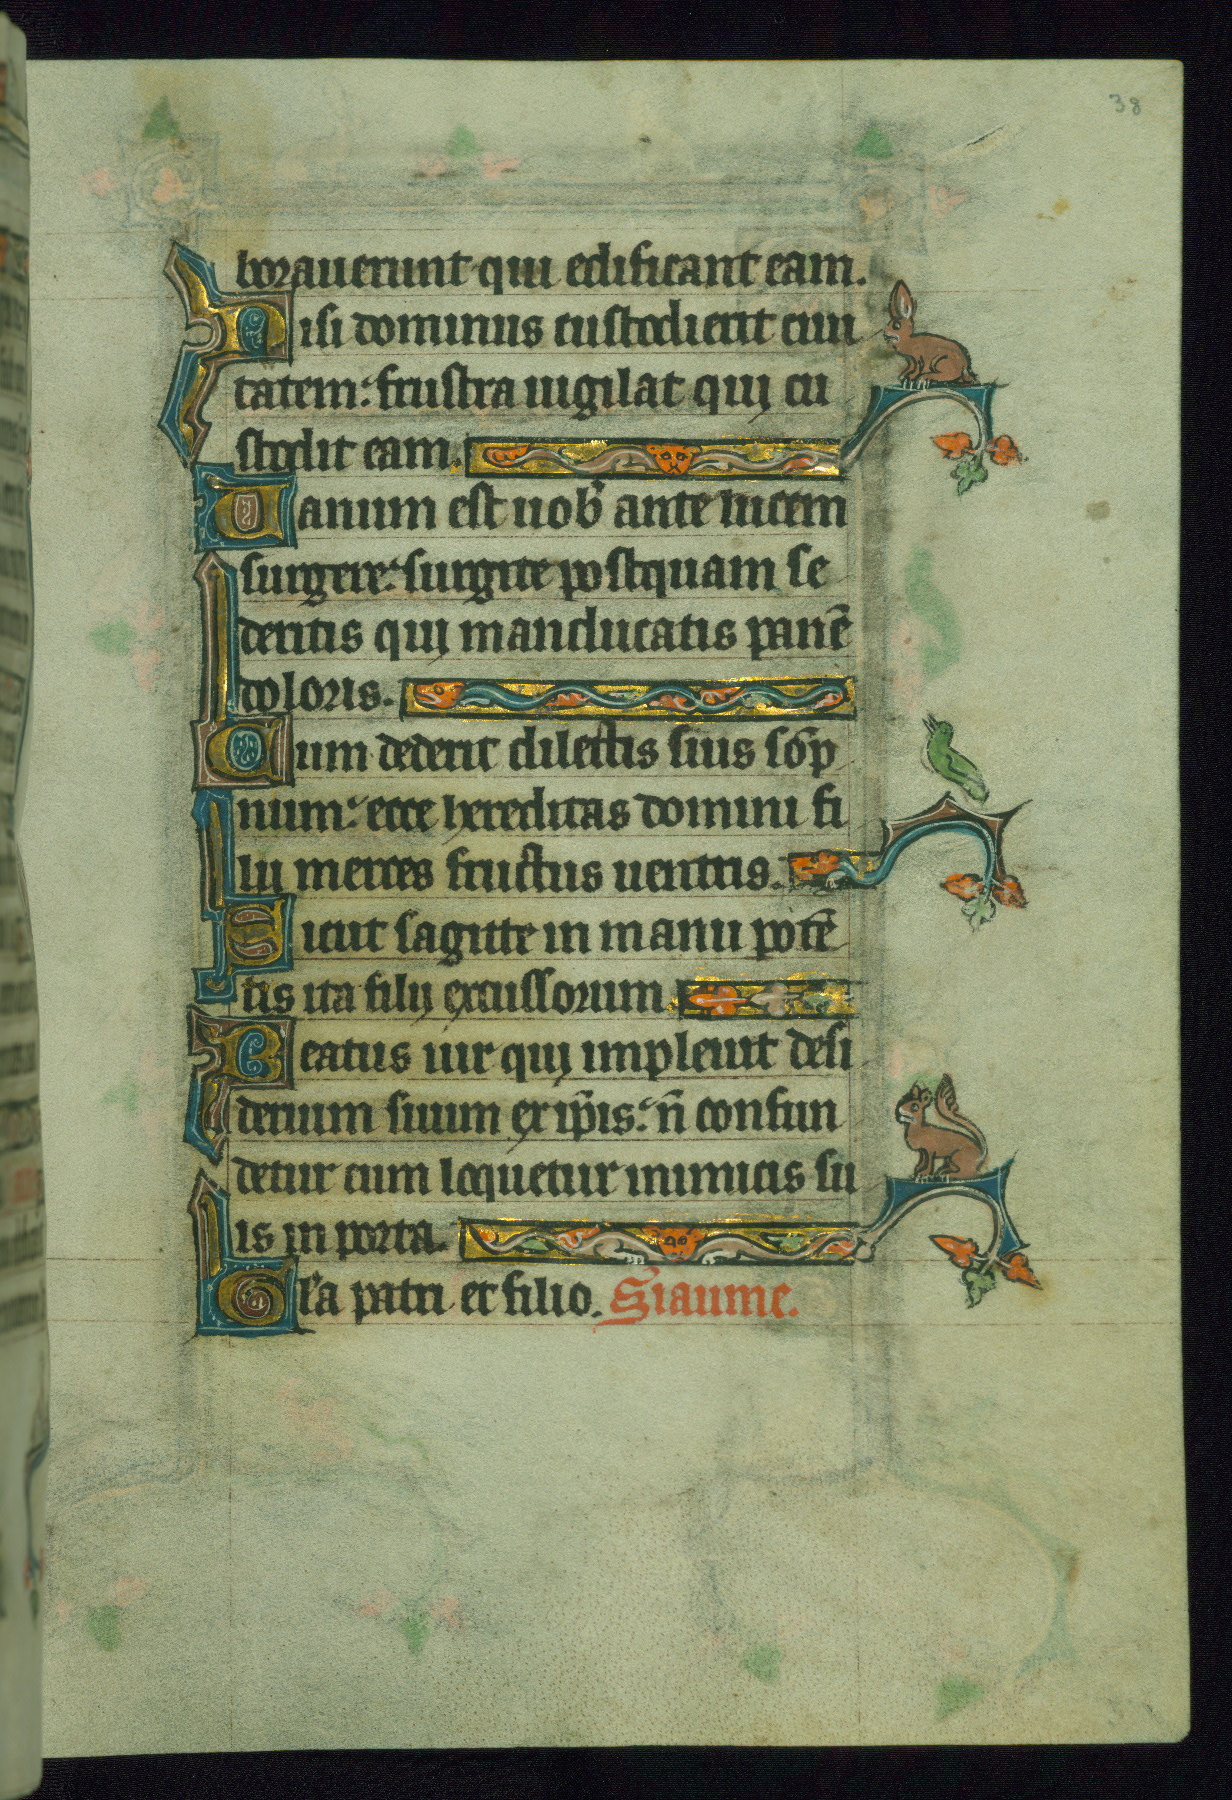 38
borauerunt qui edificant eam.
Nisi dominus custodierit ciui
tatem: frustra uigilat qui cu
stodit eam.
Uanum est uob' ante lucem
surgere: surgite postquam se
deritis qui manducatis panē
doloris.
Cum dederit dilectis suis sōp
num: ecce hereditas domini fi
lii merces fructus uentris.
Sicut sagitte in manu potē
tis ita filii excussorum.
Beatus uir qui impleuit desi
derium suum ex ip̄is: n̄ confun
detur cum loquetur inimicis su
is in porta.
Gl'a patri et filio. Siaume.